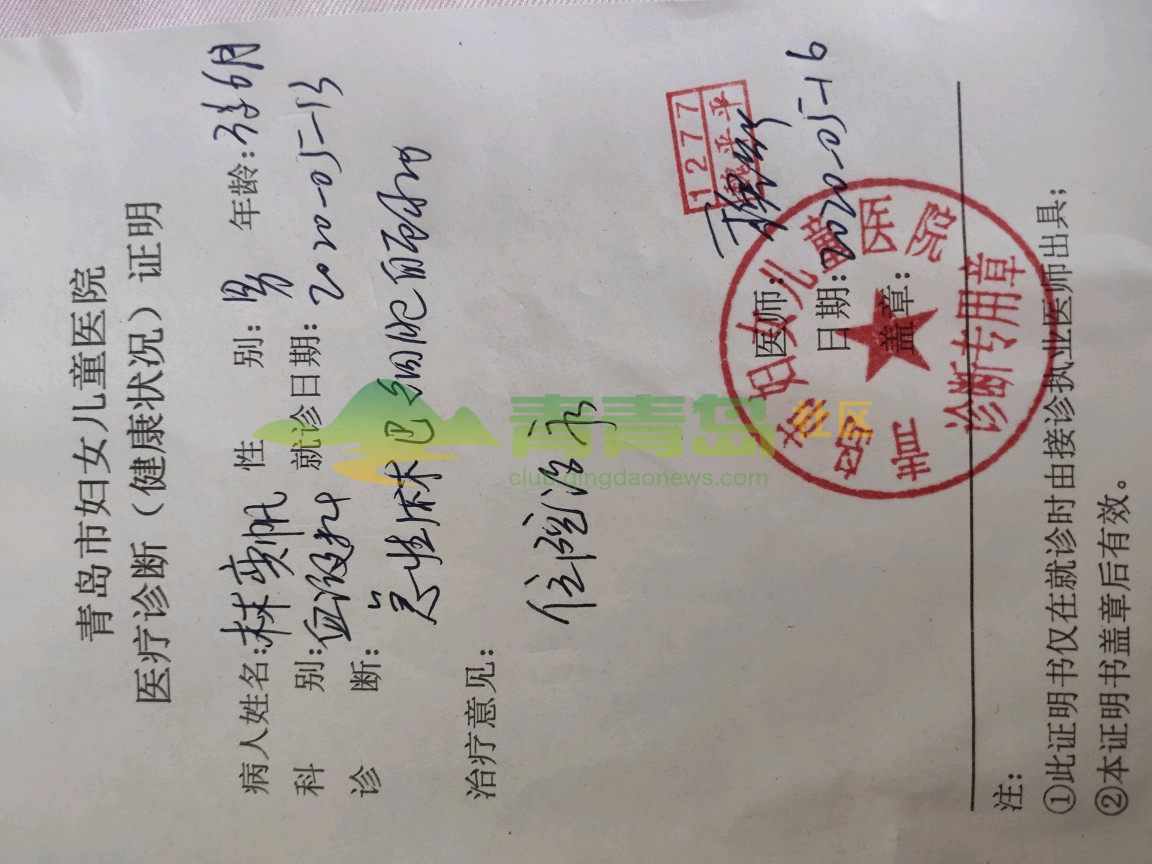 青岛市妇女儿童医院
医疗诊断（健康状况）证明
病人姓名：林奕帆 性 别：男 年龄：6月
科 别：血液科 就诊日期：2020-05-13
诊 断：急性淋巴细胞白血病
治疗意见：
住院治疗
1277
医师：
日期：2020-05-16
盖章：
妇女儿童医院
诊断专用章
青青岛社区
club.qingdaonews.com
注：
①此证明书仅在就诊时由接诊执业医师出具；
②本证明书盖章后有效。